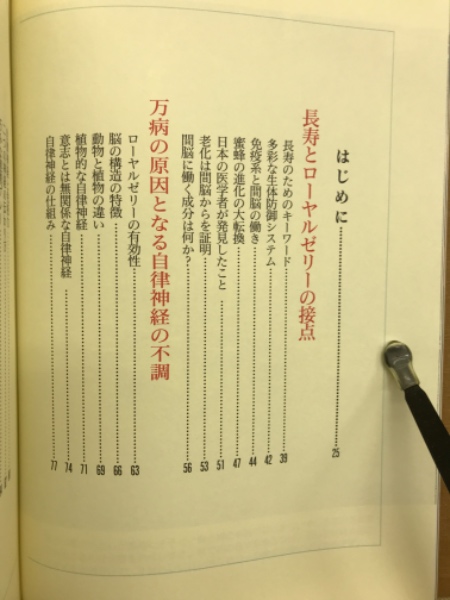 はじめに 25
長寿とローヤルゼリーの接点
長寿のためのキーワード 39
多彩な生体防御システム 42
免疫系と間脳の働き 44
蜜蜂の進化の大転換 47
日本の医学者が発見したこと 51
老化は間脳からを証明 53
間脳に働く成分は何か? 56
万病の原因となる自律神経の不調
ローヤルゼリーの有効性 63
脳の構造の特徴 66
動物と植物の違い 69
植物的な自律神経 71
意志とは無関係な自律神経 74
自律神経の仕組み 77